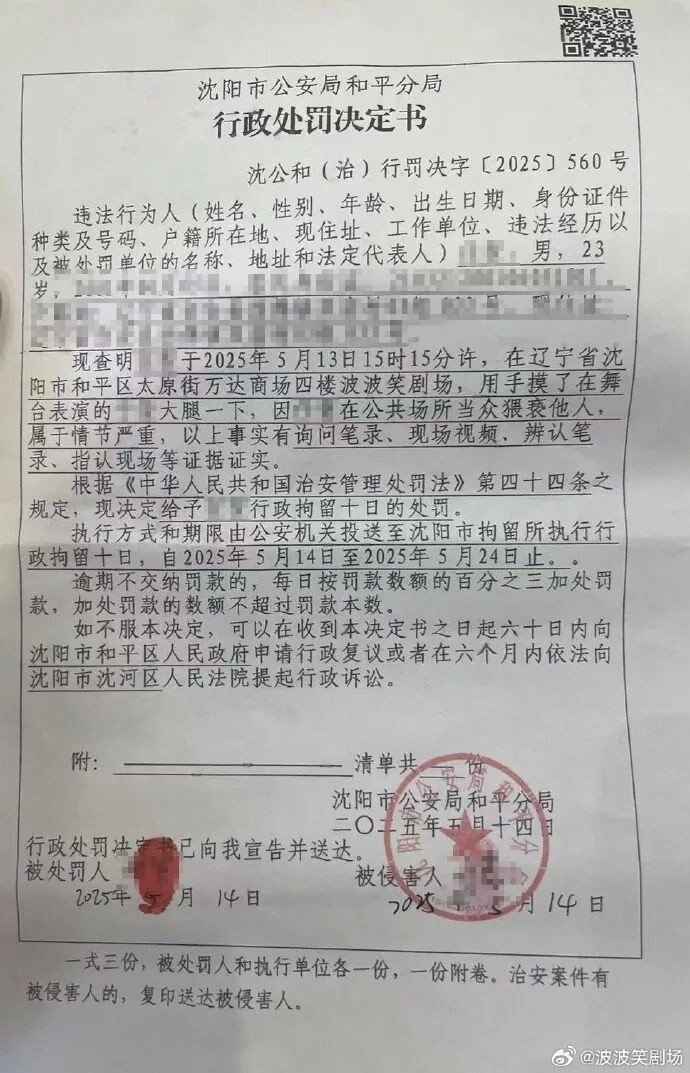 沈阳市公安局和平分局
行政处罚决定书
沈公和（治）行罚决字〔2025〕560号
违法行为人（姓名、性别、年龄、出生日期、身份证件
种类及号码、户籍所在地、现住址、工作单位、违法经历以
及被处罚单位的名称、地址和法定代表人）男，23
岁，
现查明 于2025年5月13日15时15分许，在辽宁省沈
阳市和平区太原街万达商场四楼波波笑剧场，用手摸了在舞
台表演的 大腿一下，因 在公共场所当众猥亵他人，
属于情节严重，以上事实有询问笔录、现场视频、辨认笔
录、指认现场等证据证实。
根据《中华人民共和国治安管理处罚法》第四十四条之
规定，现决定给予 行政拘留十日的处罚。
执行方式和期限由公安机关投送至沈阳市拘留所执行行
政拘留十日，自2025年5月14日至2025年5月24日止。。
逾期不交纳罚款的，每日按罚款数额的百分之三加处罚
款，加处罚款的数额不超过罚款本数。
如不服本决定，可以在收到本决定书之日起六十日内向
沈阳市和平区人民政府申请行政复议或者在六个月内依法向
沈阳市沈河区人民法院提起行政诉讼。
附： 清单共 份
沈阳市公安局和平分局
二〇二五年五月十四日
行政处罚决定书已向我宣告并送达。
被处罚人 被侵害人
2025年5月14日 2025 5月14日
一式三份，被处罚人和执行单位各一份，一份附卷。治安案件有
被侵害人的，复印送达被侵害人。
@波波笑剧场